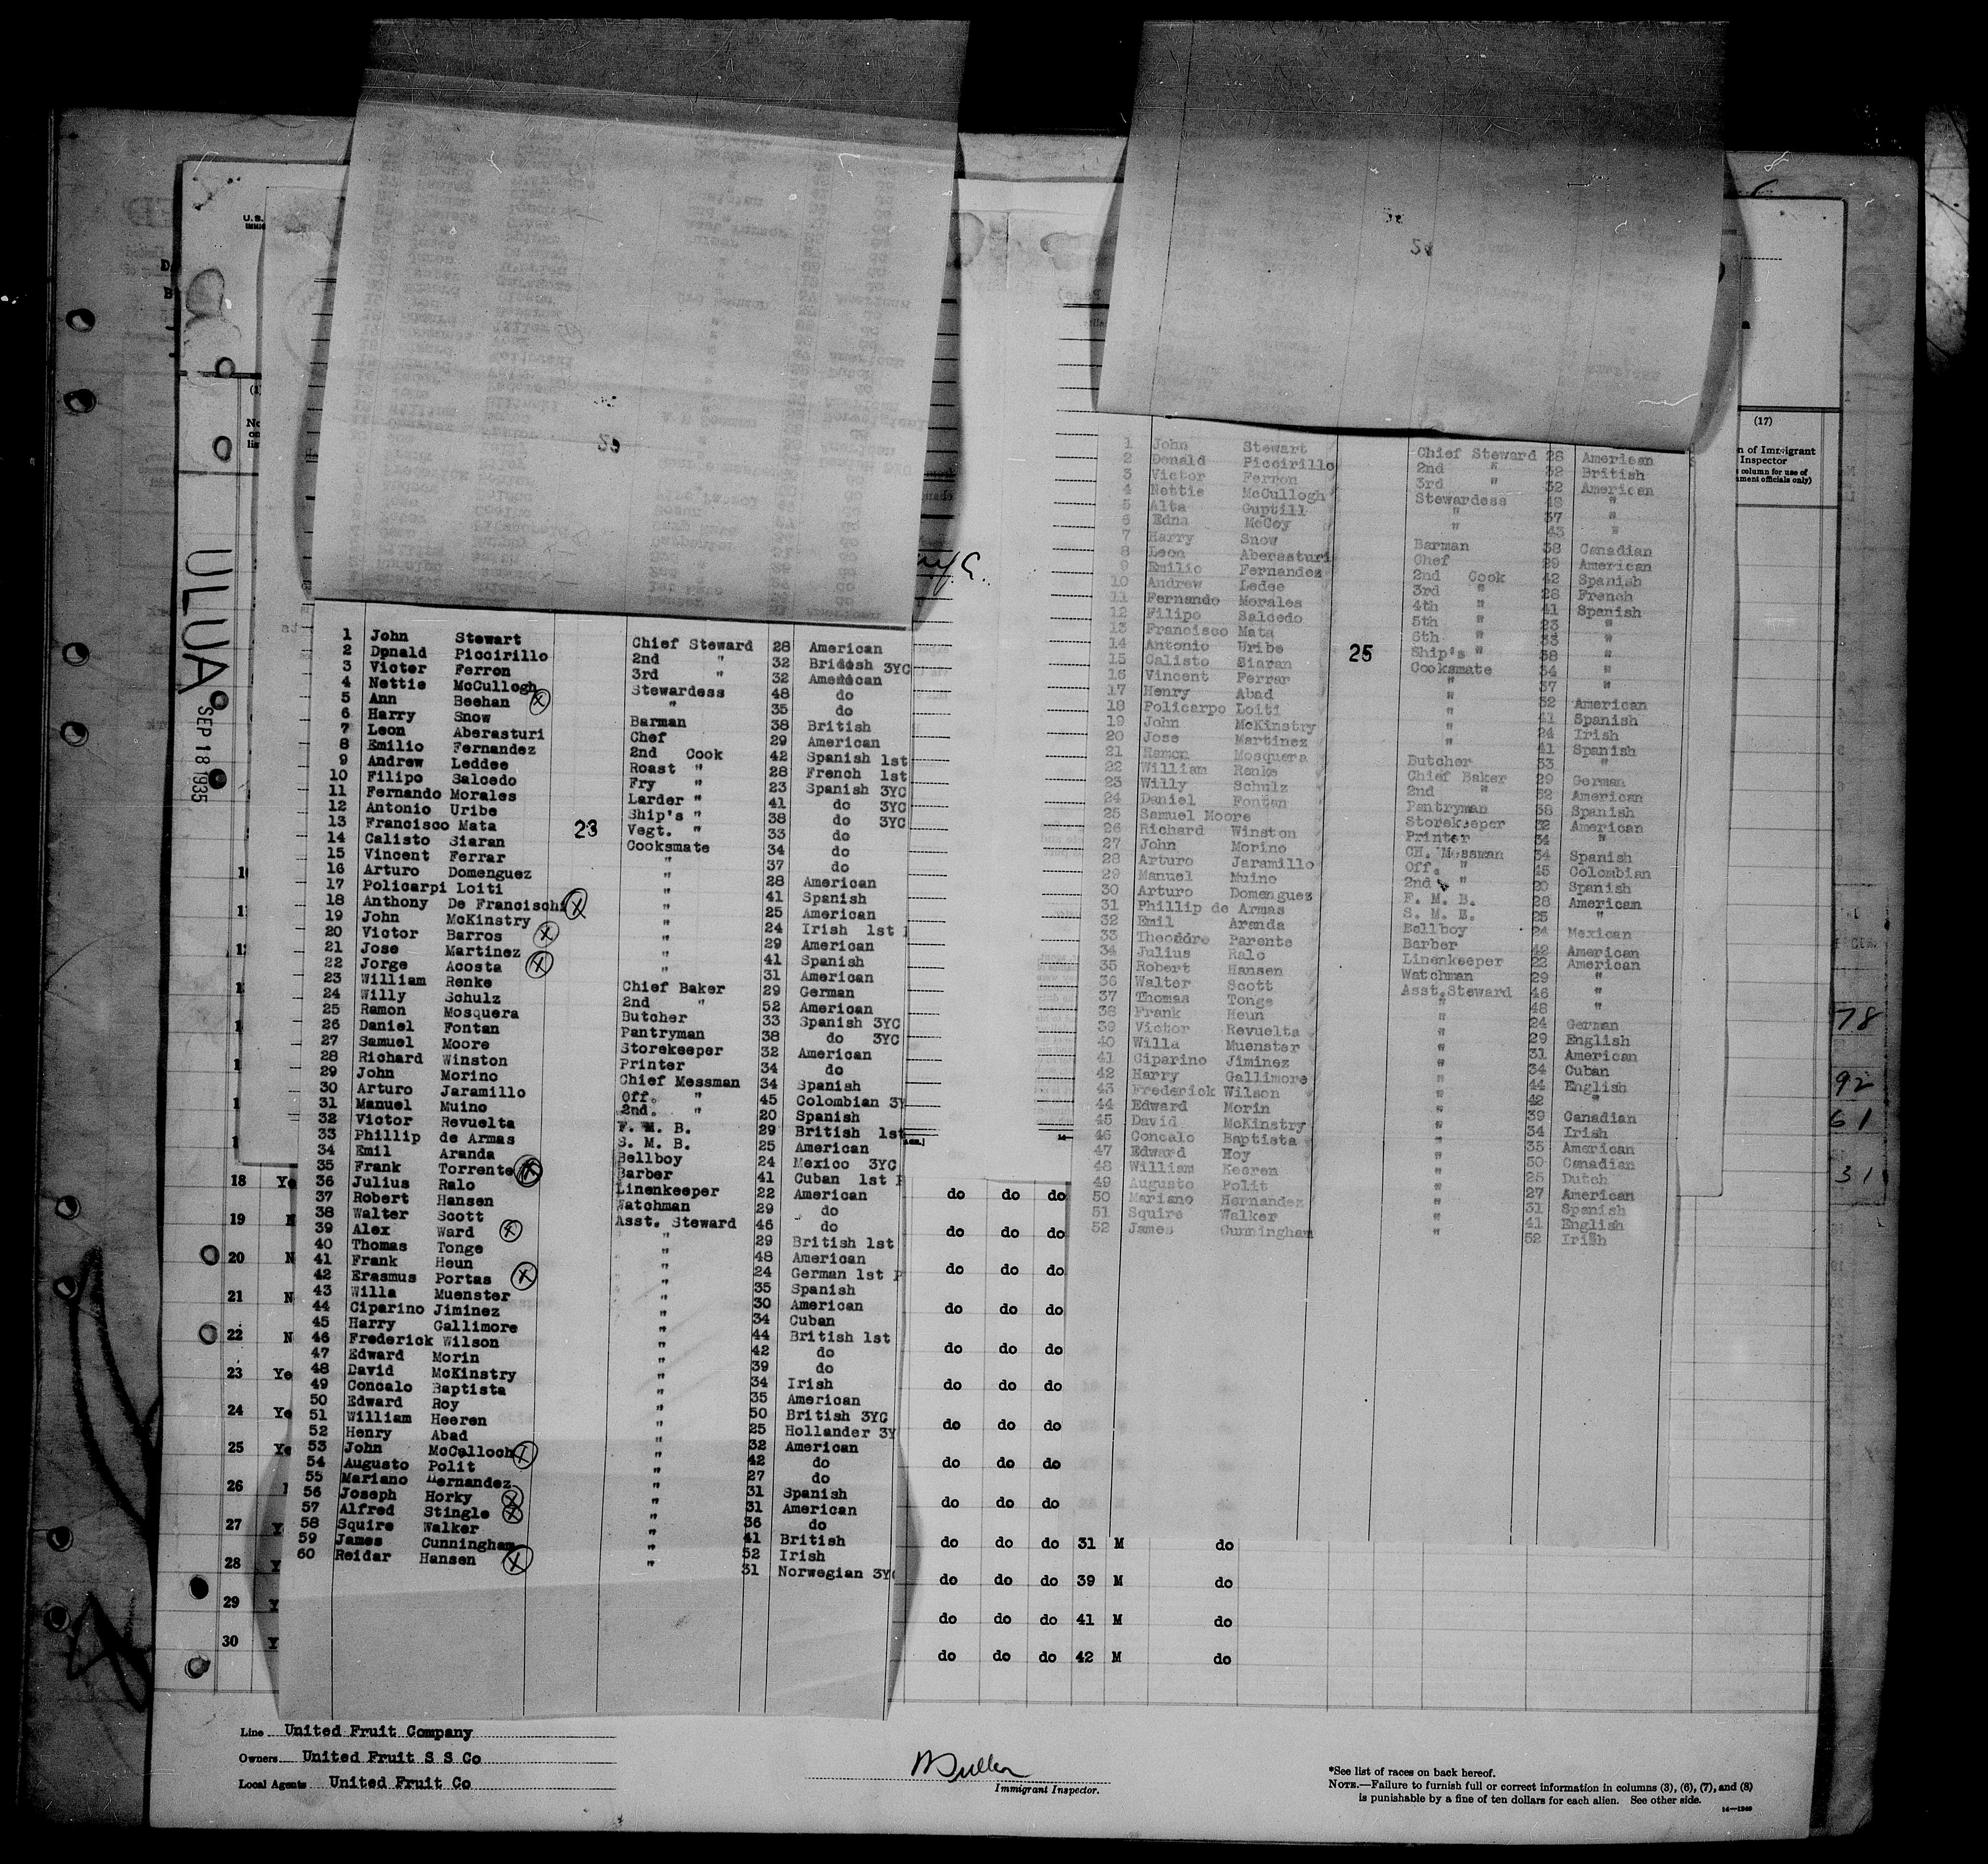 ULUA
SEP 18 1935
1 John Stewart Chief Steward 28 American
2 Donald Piccirillo 2nd " 32 British 3YC
3 Victor Ferron 3rd " 32 American
4 Nettie McCullogh Stewardess 48 do
5 Ann Beehan " 35 do
6 Harry Snow Barman 38 British
7 Leon Aberasturi Chef 29 American
8 Emilio Fernandez 2nd Cook 42 Spanish 1st
9 Andrew Leddee Roast " 28 French 1st
10 Filipo Salcedo Fry " 23 Spanish 3YC
11 Fernando Morales Larder " 41 do 3YC
12 Antonio Uribe Ship's " 38 do 3YC
13 Francisco Mata 23 Vegt. " 33 do
14 Calisto Siaran Cooksmate 34 do
15 Vincent Ferrar " 37 do
16 Arturo Domenguez " 28 American
17 Policarpi Loiti " 41 Spanish
18 Anthony De Francischi " 25 American
19 John McKinstry " 24 Irish 1st
20 Victor Barros " 29 American
21 Jose Martinez " 41 Spanish
22 Jorge Acosta " 31 American
23 William Renke Chief Baker 29 German
24 Willy Schulz 2nd " 52 American
25 Ramon Mosquera Butcher 33 Spanish 3YC
26 Daniel Fontan Pantryman 38 do 3YC
27 Samuel Moore Storekeeper 32 American
28 Richard Winston Printer 34 do
29 John Morino Chief Messman 34 Spanish
30 Arturo Jaramillo Off. " 45 Colombian 3Y
31 Manuel Muino 2nd. " 20 Spanish
32 Victor Revuelta F. M. B. 29 British 1st
33 Phillip de Armas S. M. B. 25 American
34 Emil Aranda Bellboy 24 Mexico 3YC
35 Frank Torrente Barber 41 Cuban 1st P
36 Julius Ralo Linenkeeper 22 American
37 Robert Hansen Watchman 29 do
38 Walter Scott Asst. Steward 46 do
39 Alex Ward " 29 British 1st
40 Thomas Tonge " 48 American
41 Frank Heun " 24 German 1st P
42 Erasmus Portas " 35 Spanish
43 Willa Muenster " 30 American
44 Ciparino Jiminez " 34 Cuban
45 Harry Gallimore " 44 British 1st
46 Frederick Wilson " 42 do
47 Edward Morin " 39 do
48 David McKinstry " 34 Irish
49 Concalo Baptista " 35 American
50 Edward Roy " 50 British 3YC
51 William Heeren " 25 Hollander 3Y
52 Henry Abad " 32 American
53 John McCelloch " 42 do
54 Augusto Polit " 27 do
55 Mariano Hernandez " 31 Spanish
56 Joseph Horky " 31 American
57 Alfred Stingle " 36 do
58 Squire Walker " 41 British
59 James Cunningham " 52 Irish
60 Reidar Hansen " 31 Norwegian 3YC
1 John Stewart Chief Steward 28 American
2 Donald Piccirillo 2nd " 32 British
3 Victor Ferron 3rd " 32 American
4 Nettie McCullogh Stewardess 48 "
5 Alta Guptill " 37 "
6 Edna McCoy " 43 "
7 Harry Snow Barman 38 Canadian
8 Leon Aberasturi Chef 29 American
9 Emilio Fernandez 2nd Cook 42 Spanish
10 Andrew Ledee 3rd " 28 French
11 Fernando Morales 4th " 41 Spanish
12 Filipo Salcedo 5th " 23 "
13 Francisco Mata 6th " 33 "
14 Antonio Uribe 25 Ship's " 38 "
15 Calisto Siaran Cooksmate 34 "
16 Vincent Ferrar " 37 "
17 Henry Abad " 32 American
18 Policarpo Loiti " 41 Spanish
19 John McKinstry " 24 Irish
20 Jose Martinez " 41 Spanish
21 Ramon Mosquera Butcher 33 "
22 William Renke Chief Baker 29 German
23 Willy Schulz 2nd " 52 American
24 Daniel Fontan Pantryman 38 Spanish
25 Samuel Moore Storekeeper 32 American
26 Richard Winston Printer 34 "
27 John Morino CH. Messman 34 Spanish
28 Arturo Jaramillo Off. " 45 Colombian
29 Manuel Muino 2nd " 20 Spanish
30 Arturo Domenguez F. M. B. 28 American
31 Phillip de Armas S. M. B. 25 "
32 Emil Aranda Bellboy 24 Mexican
33 Theodore Parente Barber 42 American
34 Julius Ralo Linenkeeper 22 American
35 Robert Hansen Watchman 29 "
36 Walter Scott Asst. Steward 46 "
37 Thomas Tonge " 48 "
38 Frank Heun " 24 German
39 Victor Revuelta " 29 English
40 Willa Muenster " 31 American
41 Ciparino Jiminez " 34 Cuban
42 Harry Gallimore " 44 English
43 Frederick Wilson " 42 "
44 Edward Morin " 39 Canadian
45 David McKinstry " 34 Irish
46 Concalo Baptista " 35 American
47 Edward Roy " 50 Canadian
48 William Heeren " 25 Dutch
49 Augusto Polit " 27 American
50 Mariano Hernandez " 31 Spanish
51 Squire Walker " 41 English
52 James Cunningham " 52 Irish
(17)
n of Immigrant
Inspector
column for use of
ment officials only)
78
92
61
31
18 Ye do do do
19 do do do
20 N do do do
21 N do do do
22 N do do do
23 Ye do do do
24 Ye do do do
25 Ye do do do
26 do do do
27 Y do do do 31 M do
28 Y do do do 39 M do
29 Y do do do 41 M do
30 Y do do do 42 M do
Line United Fruit Company
Owners United Fruit S S Co
Local Agents United Fruit Co
Immigrant Inspector.
*See list of races on back hereof.
NOTE.—Failure to furnish full or correct information in columns (3), (6), (7), and (8)
is punishable by a fine of ten dollars for each alien. See other side.
14—1240